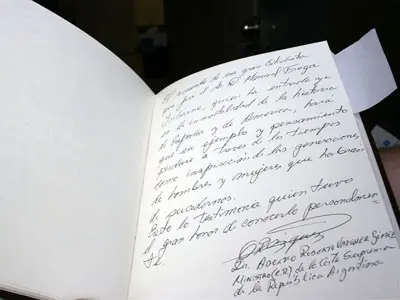 El recuerdo de ese gran Estadista
que fue el Dr. D. Manuel Fraga
Iribarne, quien ha entrado ya
en la inmortalidad de la historia
de España y de America, hará
que su ejemplo y pensamiento
perdure a través de los tiempos
como inspiración de las generaciones
de hombres y mujeres que habrán
de sucedernos.
Esto lo testimonia quien tuvo
el gran honor de conocerlo personalmen-
te.
Dr. ADOLFO ROBERTO VAZQUEZ
MINISTRO (E.R) de la Corte Suprema
de la República Argentina